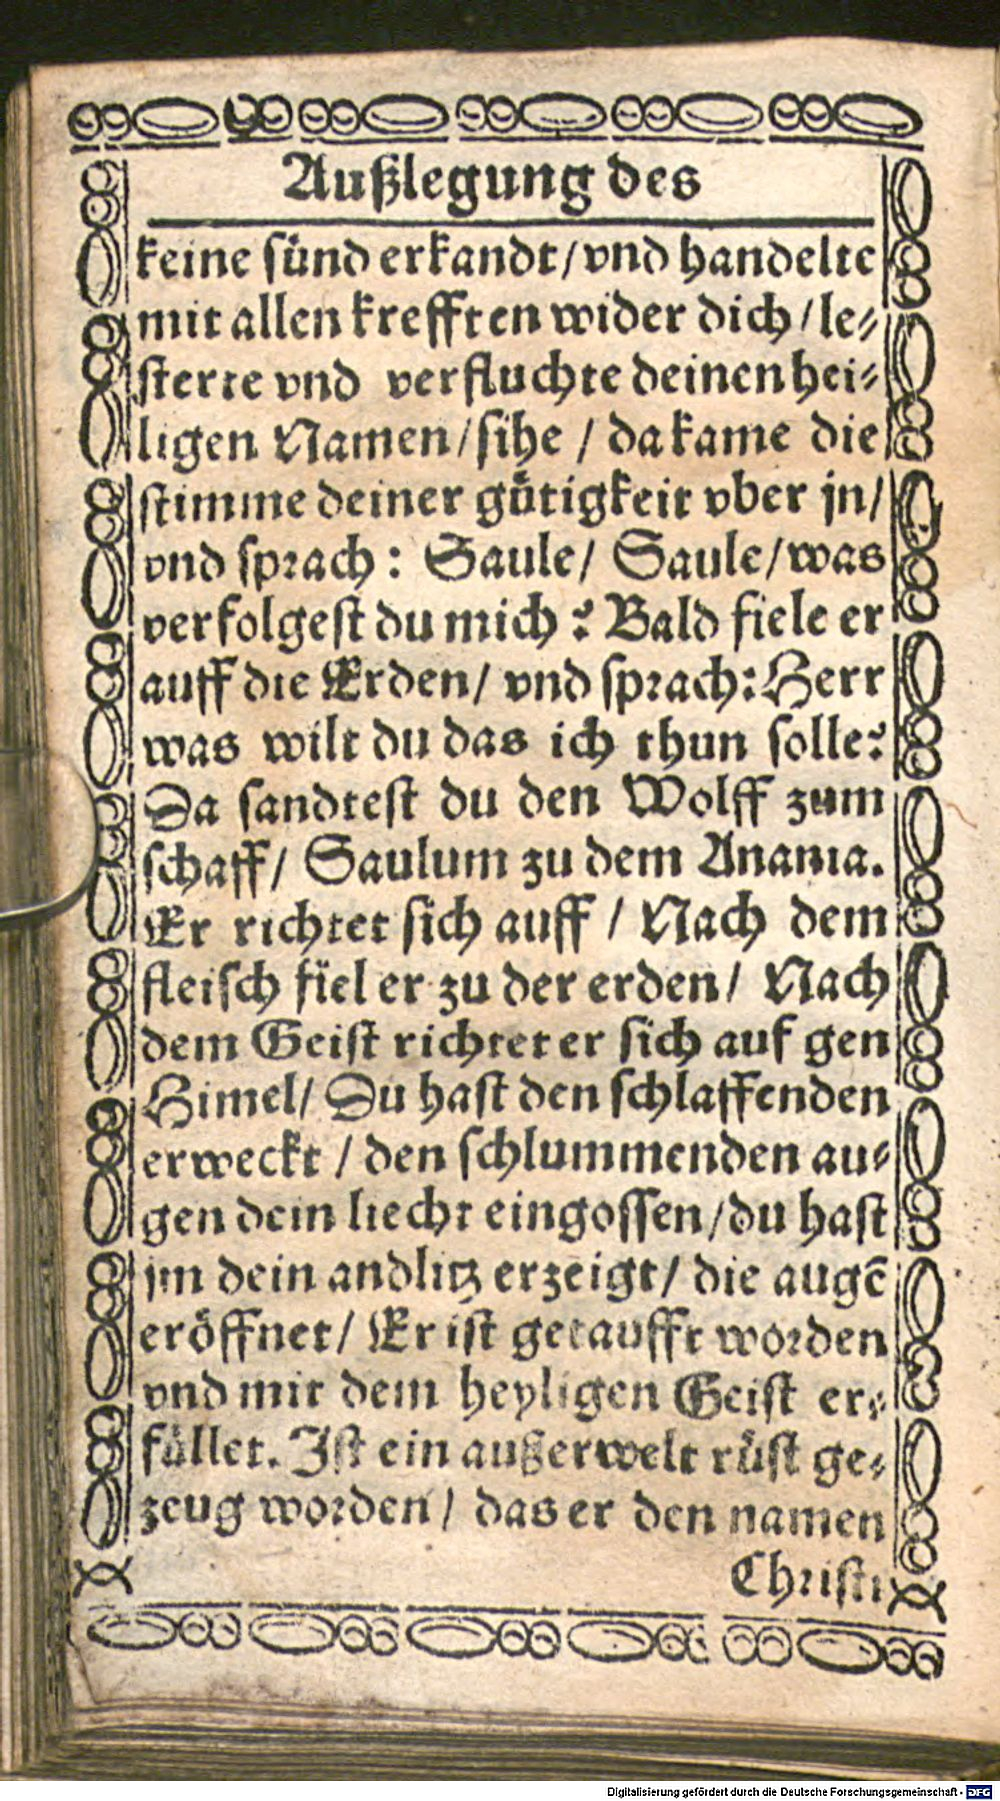 Außlegung des
keine sünd erkandt/vnd handelte
mit allen krefften wider dich/le⸗
sterte vnd verfluchte deinen hei⸗
ligen Namen/sihe/da kame die
stimme deiner gůtigkeit vber jn/
vnd sprach: Saule/ Saule/was
verfolgest du mich? Bald fiele er
auff die Erden/ vnd sprach: Herr
was wilt du das ich thun solle?
Da sandtest du den Wolff zum
schaff/ Saulum zu dem Anania.
Er richtet sich auff/ Nach dem
fleisch fiel er zu der erden/ Nach
dem Geist richtet er sich auf gen
Himel/ Du hast den schlaffenden
erweckt/den schlummenden au⸗
gen dein liecht eingossen/du hast
jm dein andlitz erzeigt/ die augē
eröffnet/ Er ist getaufft worden
vnd mit dem heyligen Geist er⸗
füllet. Ist ein außerwelt rüst ge⸗
zeug worden/ das er den namen
Christi
Digitalisierung gefördert durch die Deutsche Forschungsgemeinschaft - DFG